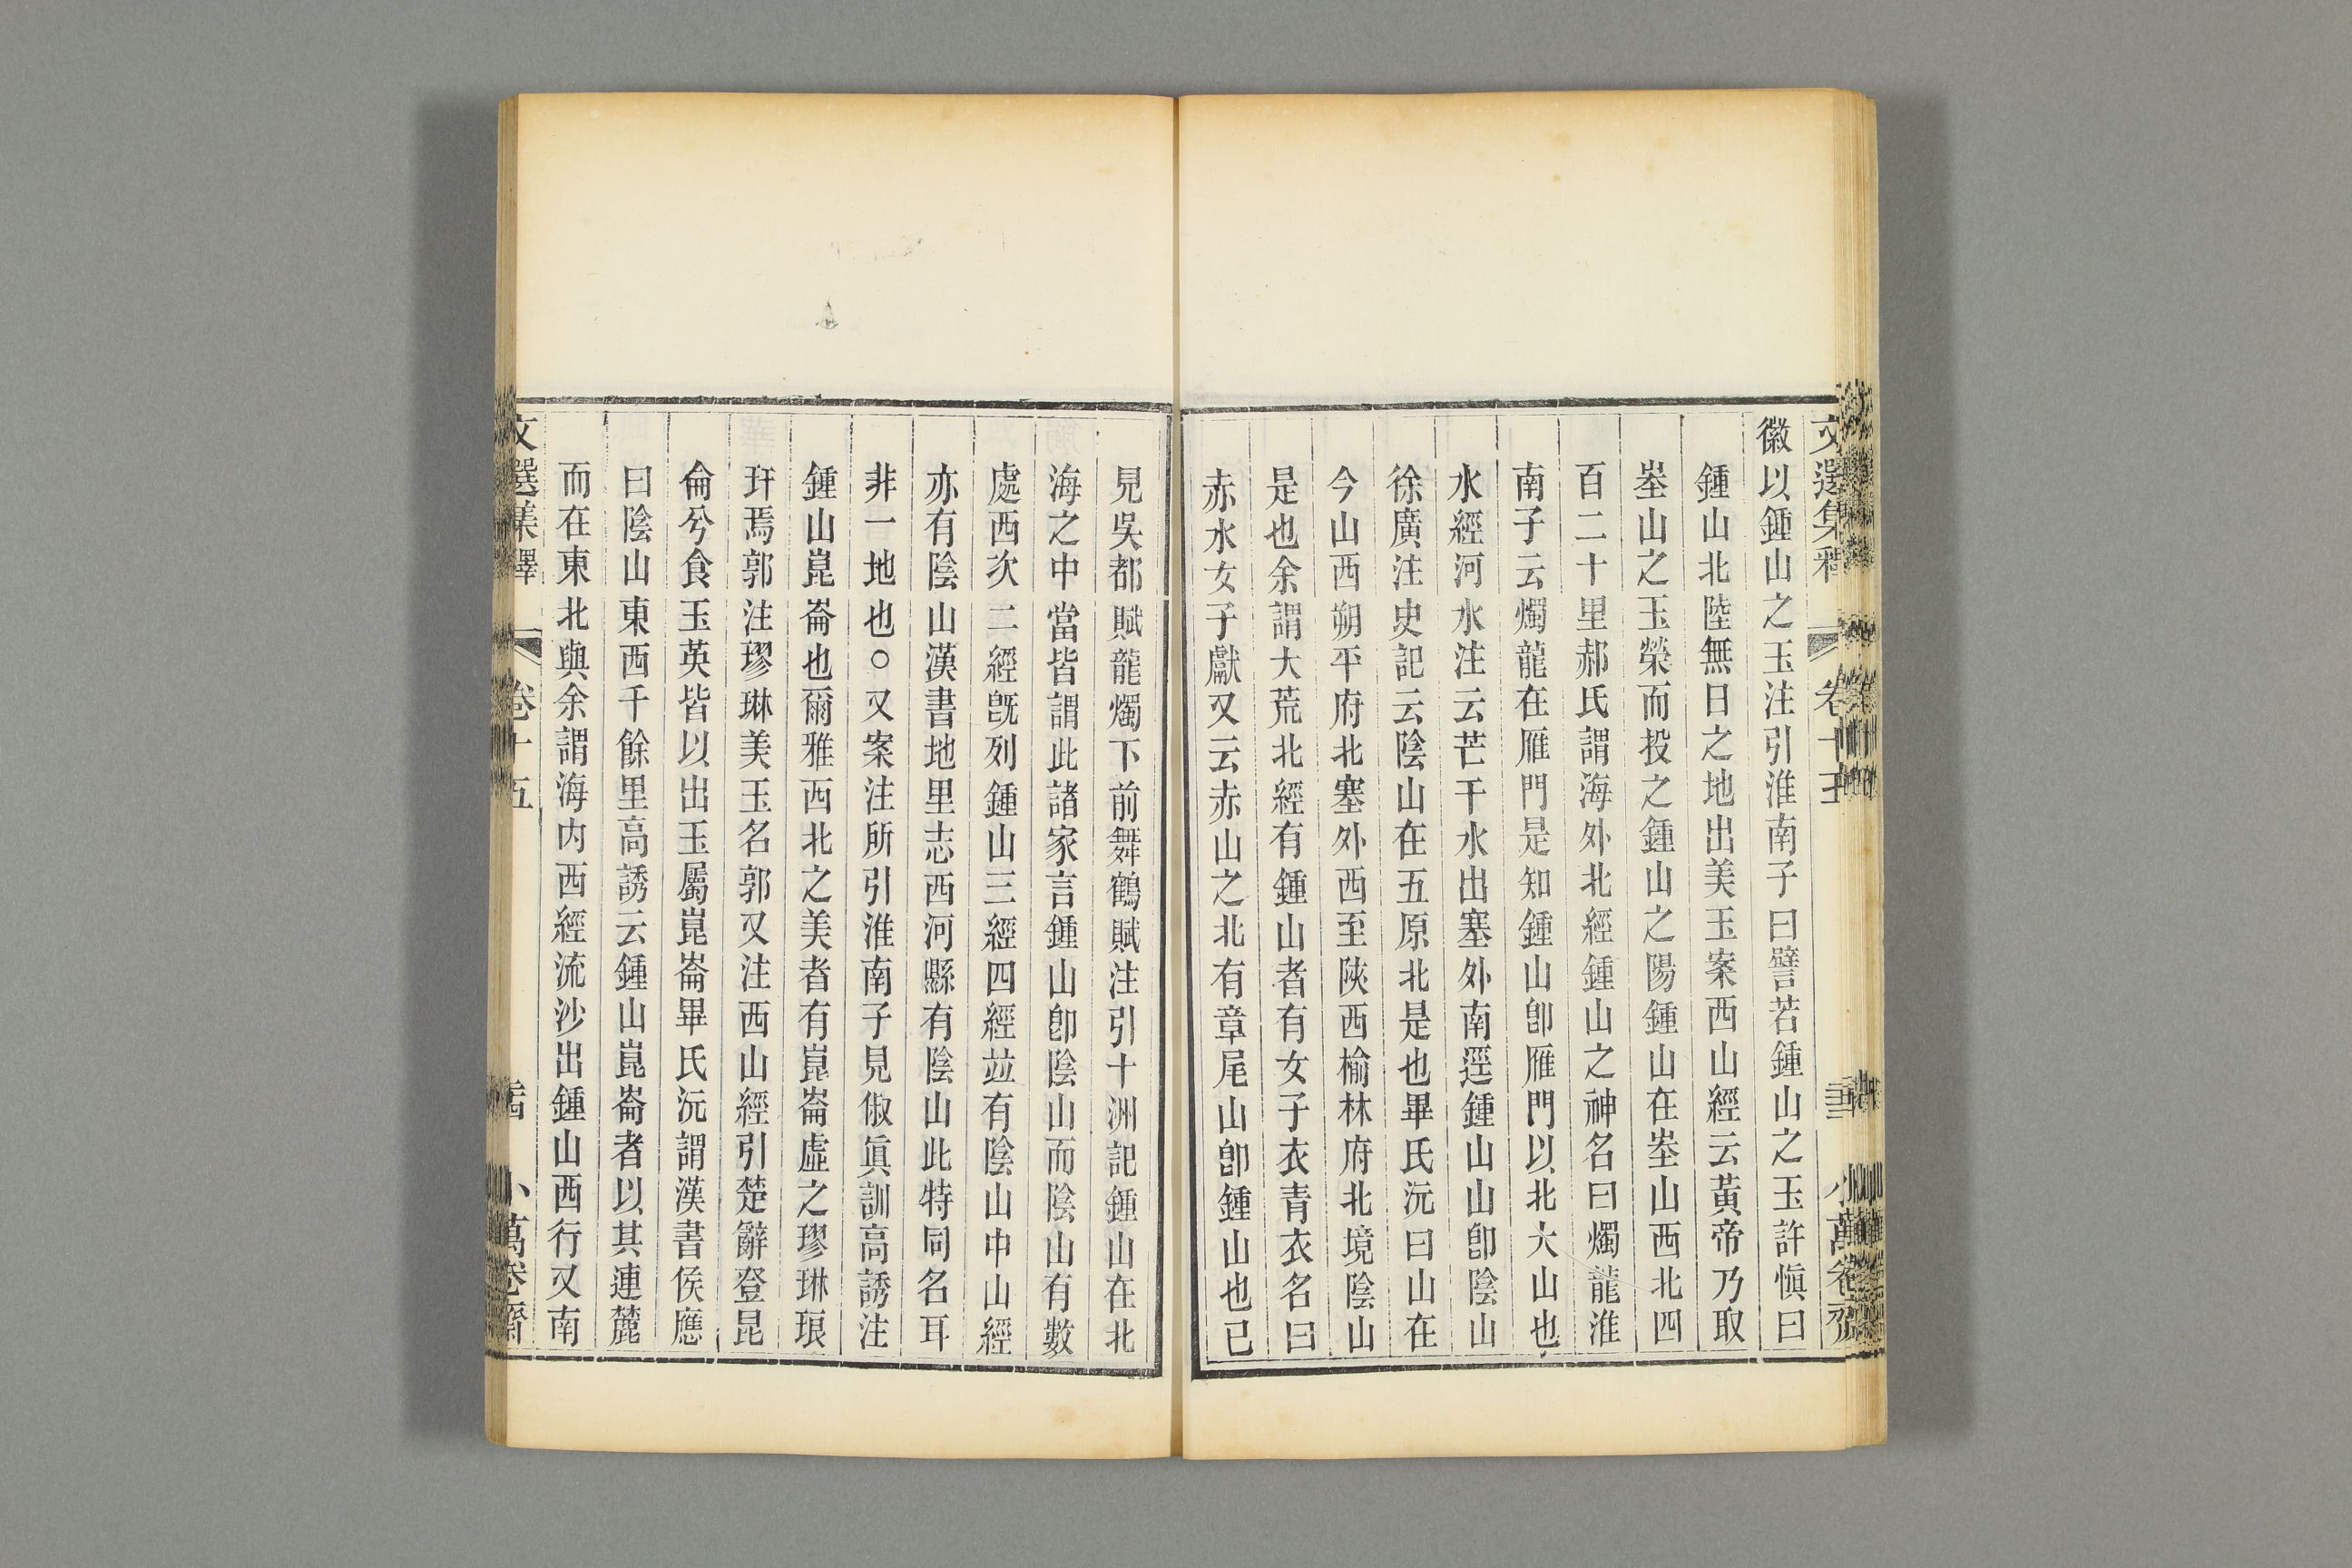 徽以鍾山之玉注引淮南子曰譬若鍾山之玉許愼曰
鍾山北陸無日之地出美玉案西山經云黃帝乃取
峚山之玉榮而投之鍾山之陽鍾山在峚山西北四
百二十里郝氏謂海外北經鍾山之神名曰燭龍淮
南子云燭龍在雁門是知鍾山卽雁門以北大山也
水經河水注云芒干水出塞外南逕鍾山山卽陰山
徐廣注史記云陰山在五原北是也畢氏沅曰山在
今山西朔平府北塞外西至陝西榆林府北境陰山
是也余謂大荒北經有鍾山者有女子衣青衣名曰
赤水女子獻又云赤山之北有章尾山卽鍾山也已
見吳都賦龍燭下前舞鶴賦注引十洲記鍾山在北
海之中當皆謂此諸家言鍾山卽陰山而陰山有數
處西次二經旣列鍾山三經四經竝有陰山中山經
亦有陰山漢書地里志西河縣有陰山此特同名耳
非一地也○又案注所引淮南子見俶眞訓高誘注
鍾山崑崙也爾雅西北之美者有崑崙虛之璆琳琅
玕焉郭注璆琳美玉名郭又注西山經引楚辭登昆
侖兮食玉英皆以出玉屬崑崙畢氏沅謂漢書侯應
曰陰山東西千餘里高誘云鍾山崑崙者以其連麓
而在東北與余謂海內西經流沙出鍾山西行又南
文選集釋 卷十五 小萬卷齋